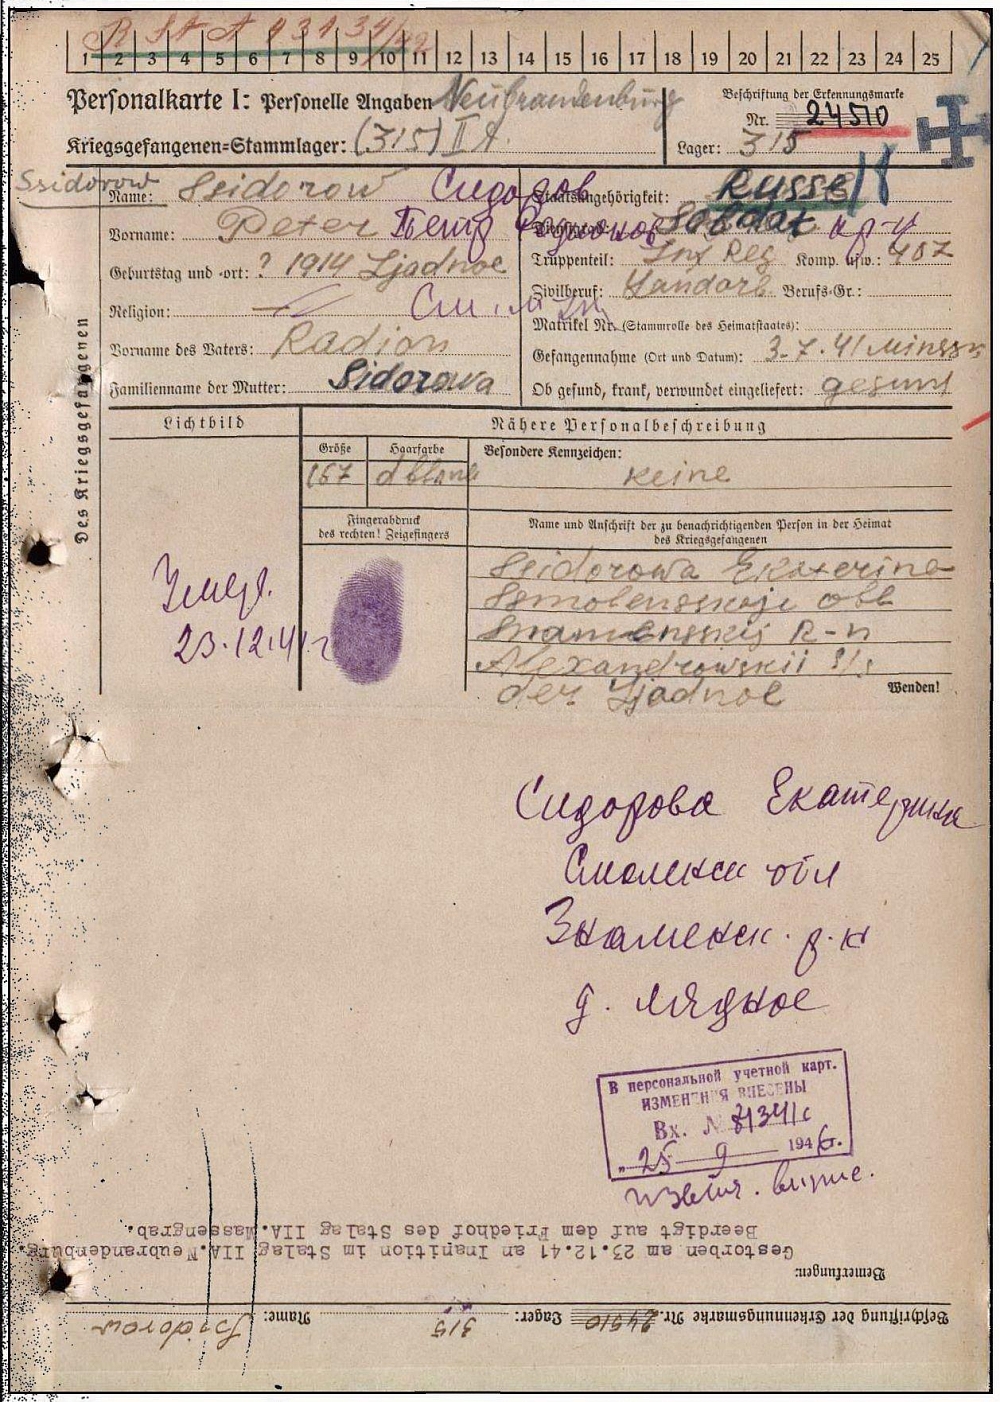 R St A 43134/42
1 2 3 4 5 6 7 8 9 10 11 12 13 14 15 16 17 18 19 20 21 22 23 24 25
Personalkarte I: Personelle Angaben Neubrandenburg
Kriegsgefangenen-Stammlager: (315) II A.
Beschriftung der Erkennungsmarke
Nr. 24510
Lager: 315
Des Kriegsgefangenen
Ssidorow
Name: Ssidorow Сидоров
Vorname: Peter Петр Родионов
Geburtstag und -ort: ? 1914 Ljadnoe
Religion:
Vorname des Vaters: Radion
Familienname der Mutter: Sidorowa
Staatsangehörigkeit: Russe
Dienstgrad: Soldat кр-ц
Truppenteil: Inf Reg Komp. usw.: 407
Zivilberuf: Landarb. Berufs-Gr.:
Matrikel Nr. (Stammrolle des Heimatstaates):
Gefangennahme (Ort und Datum): 3.7.41 Minssk
Ob gesund, krank, verwundet eingeliefert: gesund
Lichtbild
Nähere Personalbeschreibung
Größe
167
Haarfarbe
dblond
Besondere Kennzeichen:
keine
Fingerabdruck
des rechten! Zeigefingers
Name und Anschrift der zu benachrichtigenden Person in der Heimat
des Kriegsgefangenen
Ssidorowa Ekaterina
Ssmolensskaje obl
Snamensskij R-n
Alexandrowskii s/s
der Ljadnoe
Wenden!
Умер.
23.12.41 г
Сидорова Екатерина
Смоленск обл
Знаменск. р-н
д. Лядное
В персональной учетной карт.
ИЗМЕНЕНИЯ ВНЕСЕНЫ
Вх. № 81341с
„25 9 1946г.
извещ. выпис.
Beschriftung der Erkennungsmarke Nr. 24510 Lager: 315 Name: Ssidorow
Bemerkungen:
Gestorben am 23.12.41 an Inanition im Stalag IIA.Neubrandenburg.
Beerdigt auf dem Friedhof des Stalag IIA.Massengrab.